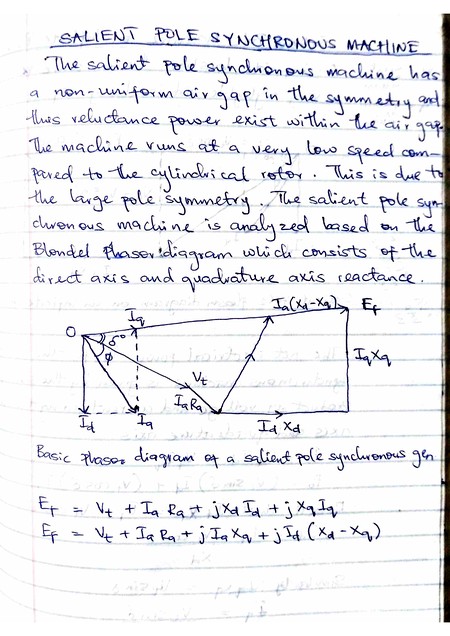 SALIENT POLE SYNCHRONOUS MACHINE
The salient pole synchronous machine has
a non-uniform air gap in the symmetry and
thus reluctance power exist within the air gap.
The machine runs at a very low speed com-
pared to the cylindrical rotor. This is due to
the large pole symmetry. The salient pole syn-
chronous machine is analyzed based on the
Blondel Phasor diagram which consists of the
direct axis and quadrature axis reactance.
Iq Ia(Xd-Xq) Ef
O δ°
ϕ IqXq
Vt
IaRa
Id Ia Id Xd
Basic phasor diagram of a salient pole synchronous gen
Ef = Vt + Ia Ra + jXd Id + jXq Iq
Ef = Vt + Ia Ra + j Ia Xq + j Id (Xd - Xq)